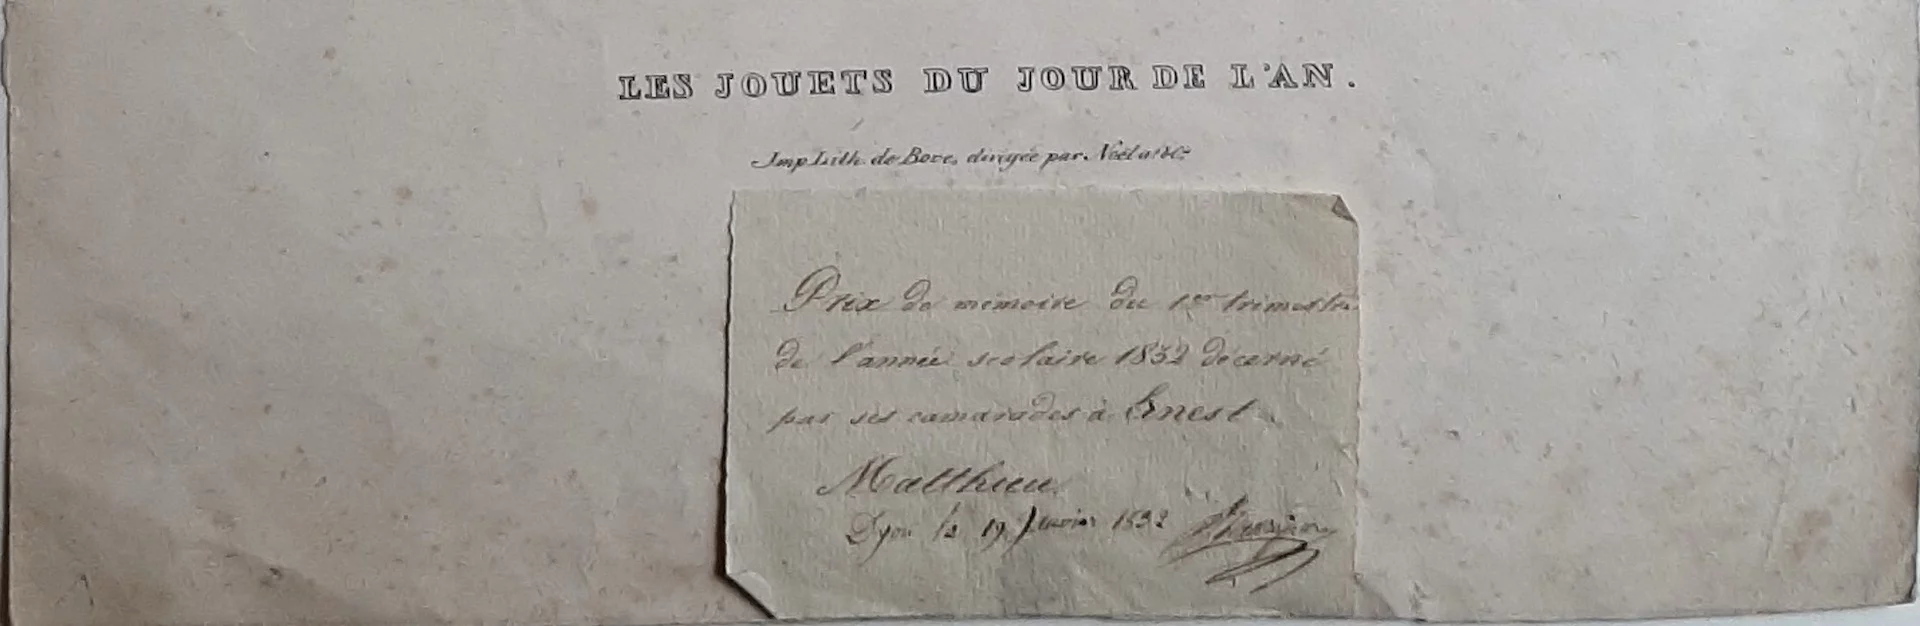 LES JOUETS DU JOUR DE L'AN.
Imp Lith. de Bove, dirigée par Noël aî. & Cie
Prix de mémoire du 1er trimestre
de l'année scolaire 1832 décerné
par ses camarades à Ernest
Matthieu.
Lyon le 19 Janvier 1832